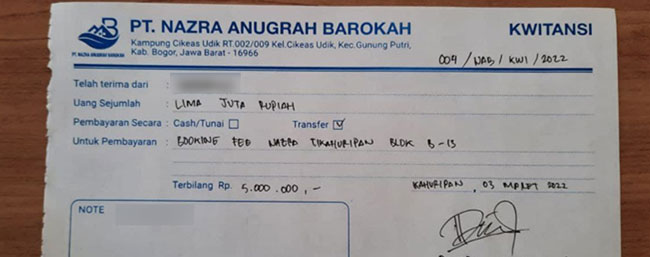 PT. NAZRA ANUGRAH BAROKAH
KWITANSI
Kampung Cikeas Udik RT.002/009 Kel.Cikeas Udik, Kec.Gunung Putri,
Kab. Bogor, Jawa Barat - 16966
PT. NAZRA ANUGRAH BAROKAH
009 / NAB / KWI / 2022
Telah terima dari :
Uang Sejumlah : LIMA JUTA RUPIAH
Pembayaran Secara : Cash/Tunai Transfer
Untuk Pembayaran : BOOKING FEE NAZRA TIKAHURIPAN BLOK B-13
Terbilang Rp. 5.000.000,-
KAHURIPAN, 03 MARET 2022
NOTE